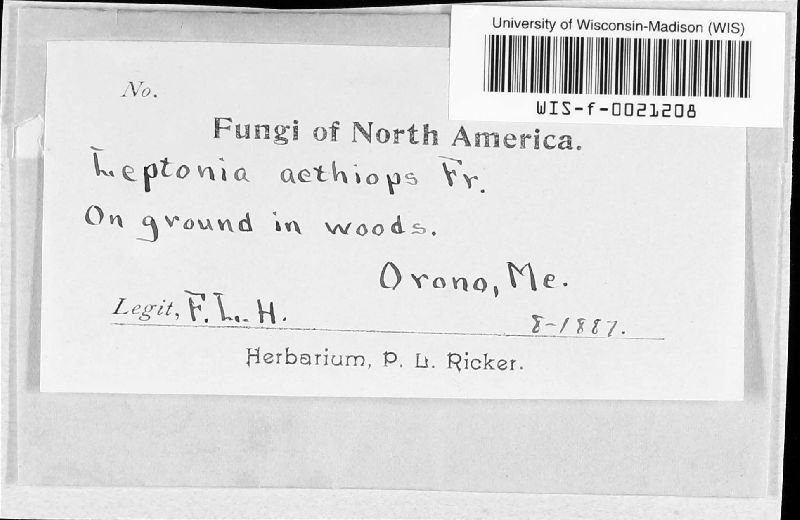 University of Wisconsin-Madison (WIS)
WIS-f-0021208
No.
Fungi of North America.
Leptonia aethiops Fr.
On ground in woods.
Orono, Me.
Legit, F. L. H.
8-1887.
Herbarium, P. L. Ricker.